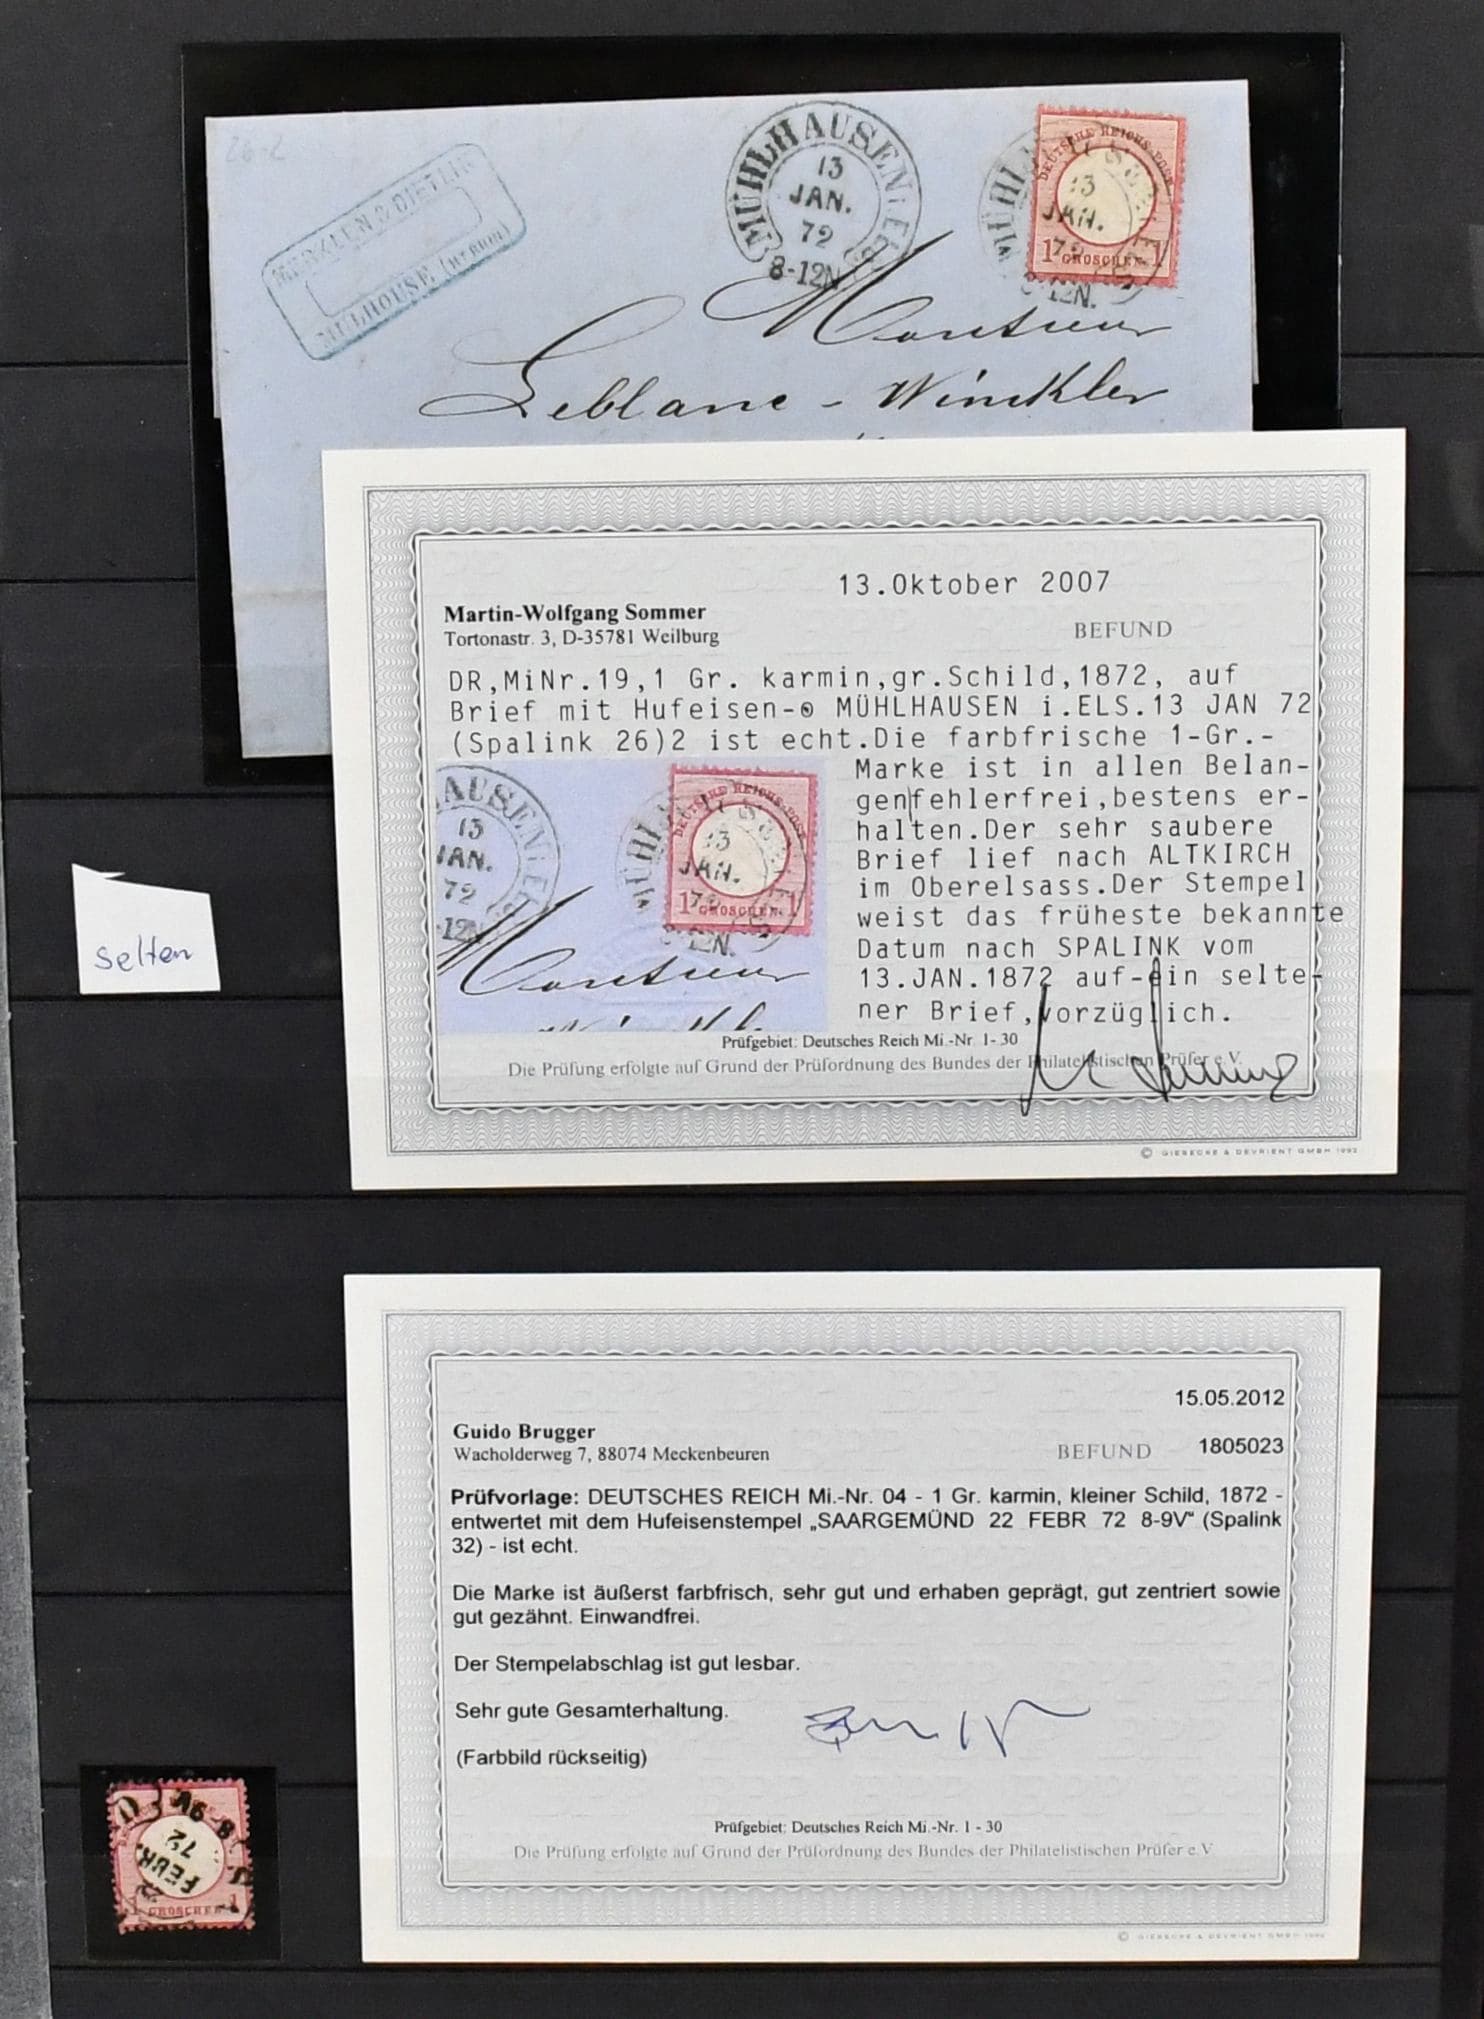 26-2
MÜHLHAUSEN i. ELS
13
JAN.
72
8-12N.
DEUTSCHE REICHS-POST
13
JAN.
72
1 GROSCHEN 1
MULHOUSE
Monsieur
Leblanc - Winckler
13.Oktober 2007
Martin-Wolfgang Sommer
Tortonastr. 3, D-35781 Weilburg
BEFUND
DR,MiNr.19,1 Gr. karmin,gr.Schild,1872, auf
Brief mit Hufeisen-⊙ MÜHLHAUSEN i.ELS.13 JAN 72
(Spalink 26)2 ist echt.Die farbfrische 1-Gr.-
Marke ist in allen Belan-
gen fehlerfrei,bestens er-
halten.Der sehr saubere
Brief lief nach ALTKIRCH
im Oberelsass.Der Stempel
weist das früheste bekannte
Datum nach SPALINK vom
13.JAN.1872 auf-ein selte-
ner Brief,vorzüglich.
AUSEN i ELS
13
JAN.
72
-12N
DEUTSCHE REICHS-POST
13
JAN.
72
1 GROSCHEN 1
Monsieur
Prüfgebiet: Deutsches Reich Mi.-Nr. 1- 30
Die Prüfung erfolgte auf Grund der Prüfordnung des Bundes der Philatelistischen Prüfer e.V.
© GIESECKE & DEVRIENT GMBH 1992
selten
15.05.2012
Guido Brugger
Wacholderweg 7, 88074 Meckenbeuren
BEFUND 1805023
Prüfvorlage: DEUTSCHES REICH Mi.-Nr. 04 - 1 Gr. karmin, kleiner Schild, 1872 -
entwertet mit dem Hufeisenstempel „SAARGEMÜND 22 FEBR 72 8-9V“ (Spalink
32) - ist echt.
Die Marke ist äußerst farbfrisch, sehr gut und erhaben geprägt, gut zentriert sowie
gut gezähnt. Einwandfrei.
Der Stempelabschlag ist gut lesbar.
Sehr gute Gesamterhaltung.
(Farbbild rückseitig)
Prüfgebiet: Deutsches Reich Mi.-Nr. 1 - 30
Die Prüfung erfolgte auf Grund der Prüfordnung des Bundes der Philatelistischen Prüfer e.V
© GIESECKE & DEVRIENT GMBH 1992
8-9V
72
FEBR.
GROSCHEN 1